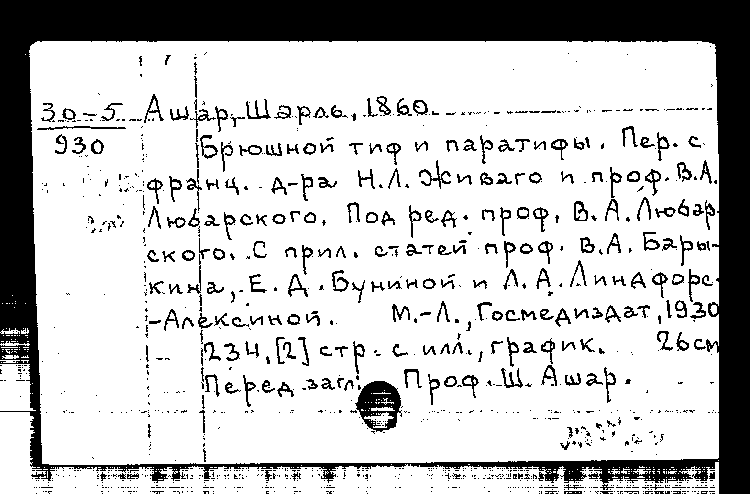 30-5 Ашар, Шарль, 1860.
930 Брюшной тиф и паратифы. Пер. с
франц. д-ра Н.Л. Живаго и проф. В.А.
Любарского. Под ред. проф. В.А. Любар-
ского. С прил. статей проф. В.А. Бары-
кина, Е.Д. Буниной и Л.А. Линдфорс-
-Алексиной. М.-Л., Госмедиздат, 1930
234, [2] стр. с илл., график. 26см
Перед загл. Проф. Ш. Ашар.